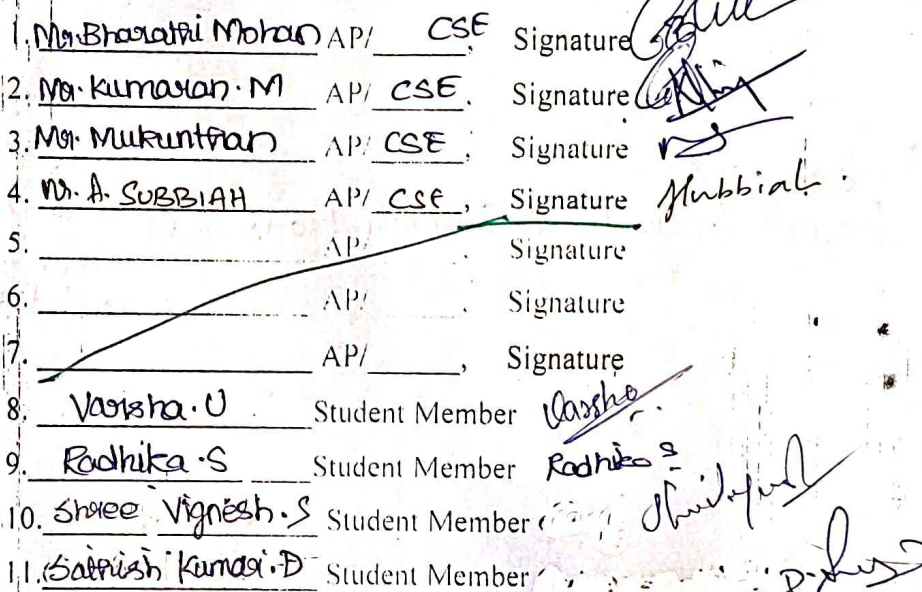 1. Mr. Bharathi Mohan AP/ CSE, Signature
2. Mr. Kumaran. M AP/ CSE, Signature
3. Mr. Mukunthan AP/ CSE, Signature
4. Mr. A. SUBBIAH AP/ CSE, Signature Subbiah.
5. AP/ , Signature
6. AP/ , Signature
7. AP/ , Signature
8. Varsha. U Student Member Varsha
9. Radhika. S Student Member Radhika S
10. Shree Vignesh. S Student Member
11. Sathish Kumar. D Student Member